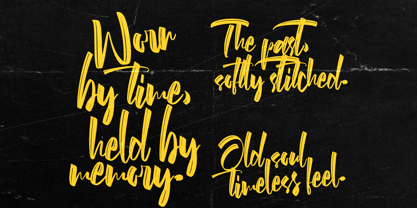 Worn
by time,
held by
memory.
The past,
softly stitched.
Old soul
timeless feel.